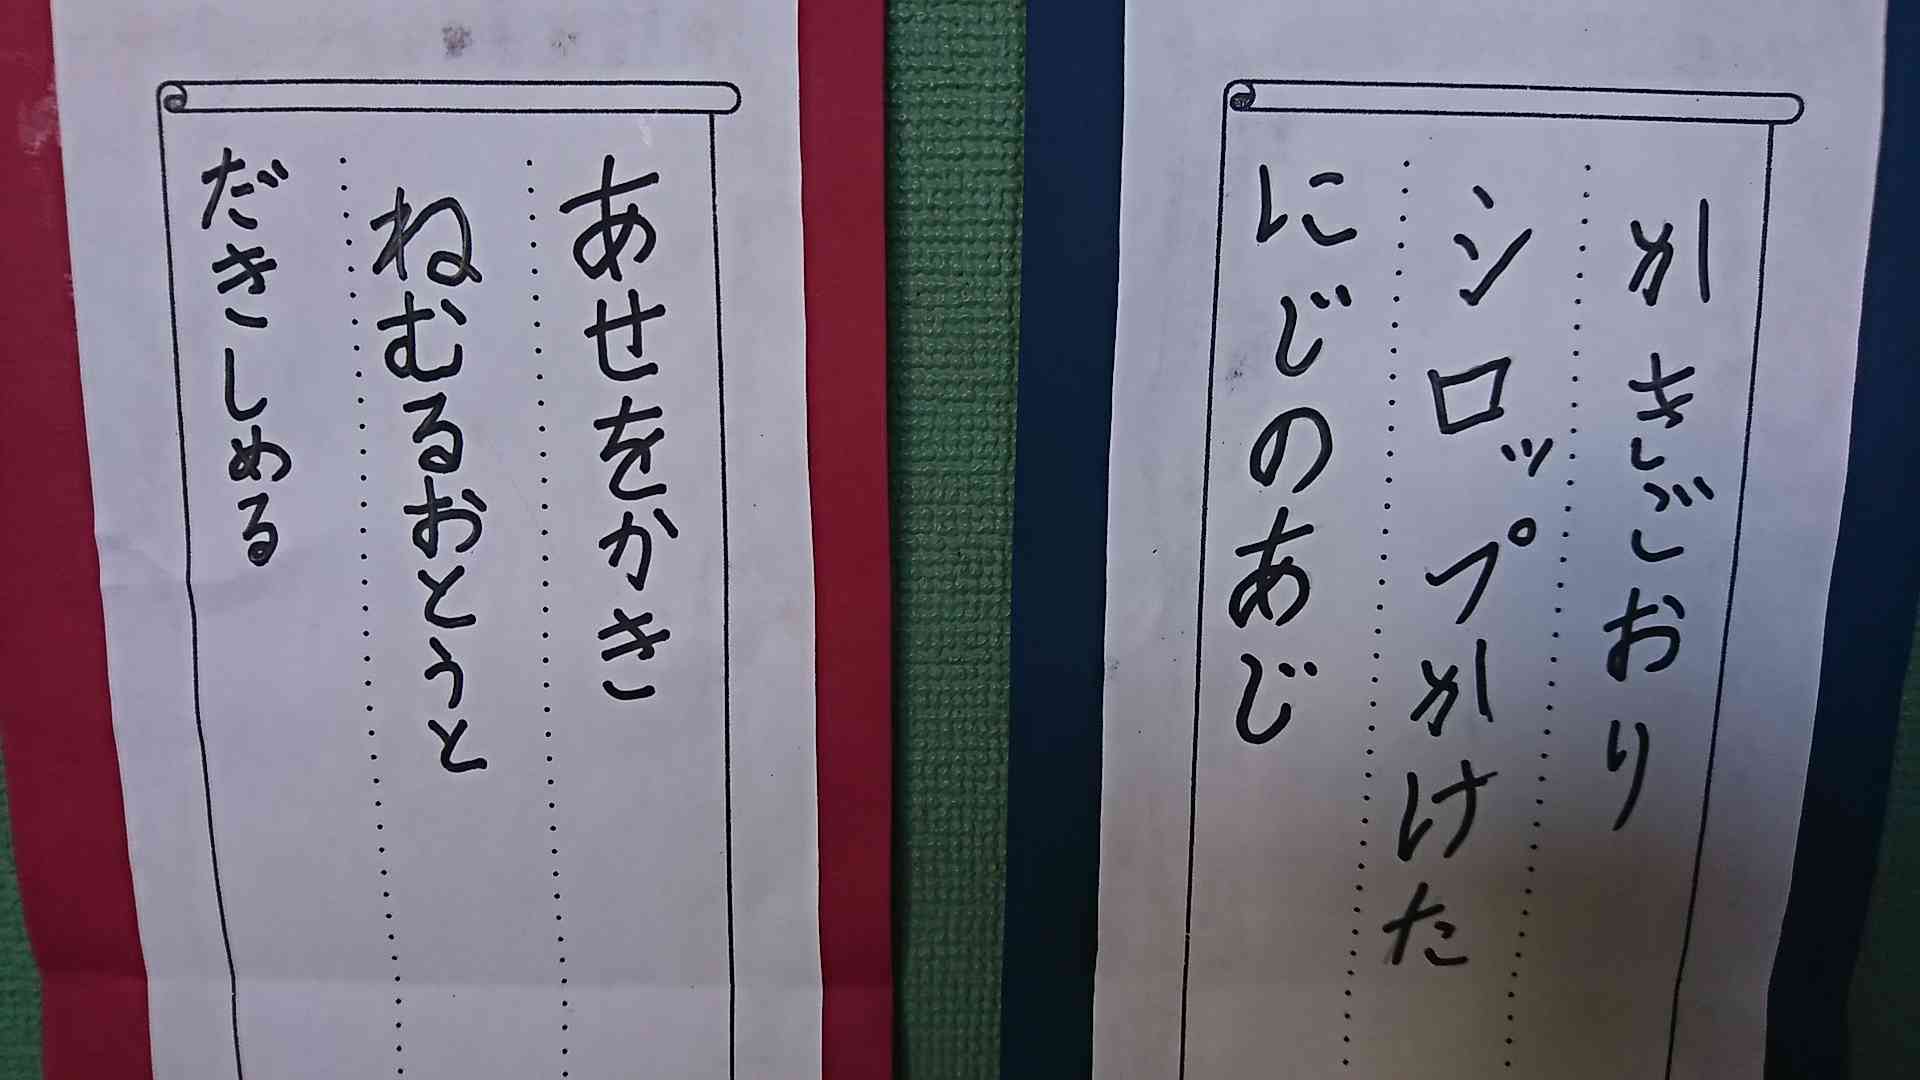 かきごおり
シロップかけた
にじのあじ
あせをかき
ねむるおとうと
だきしめる